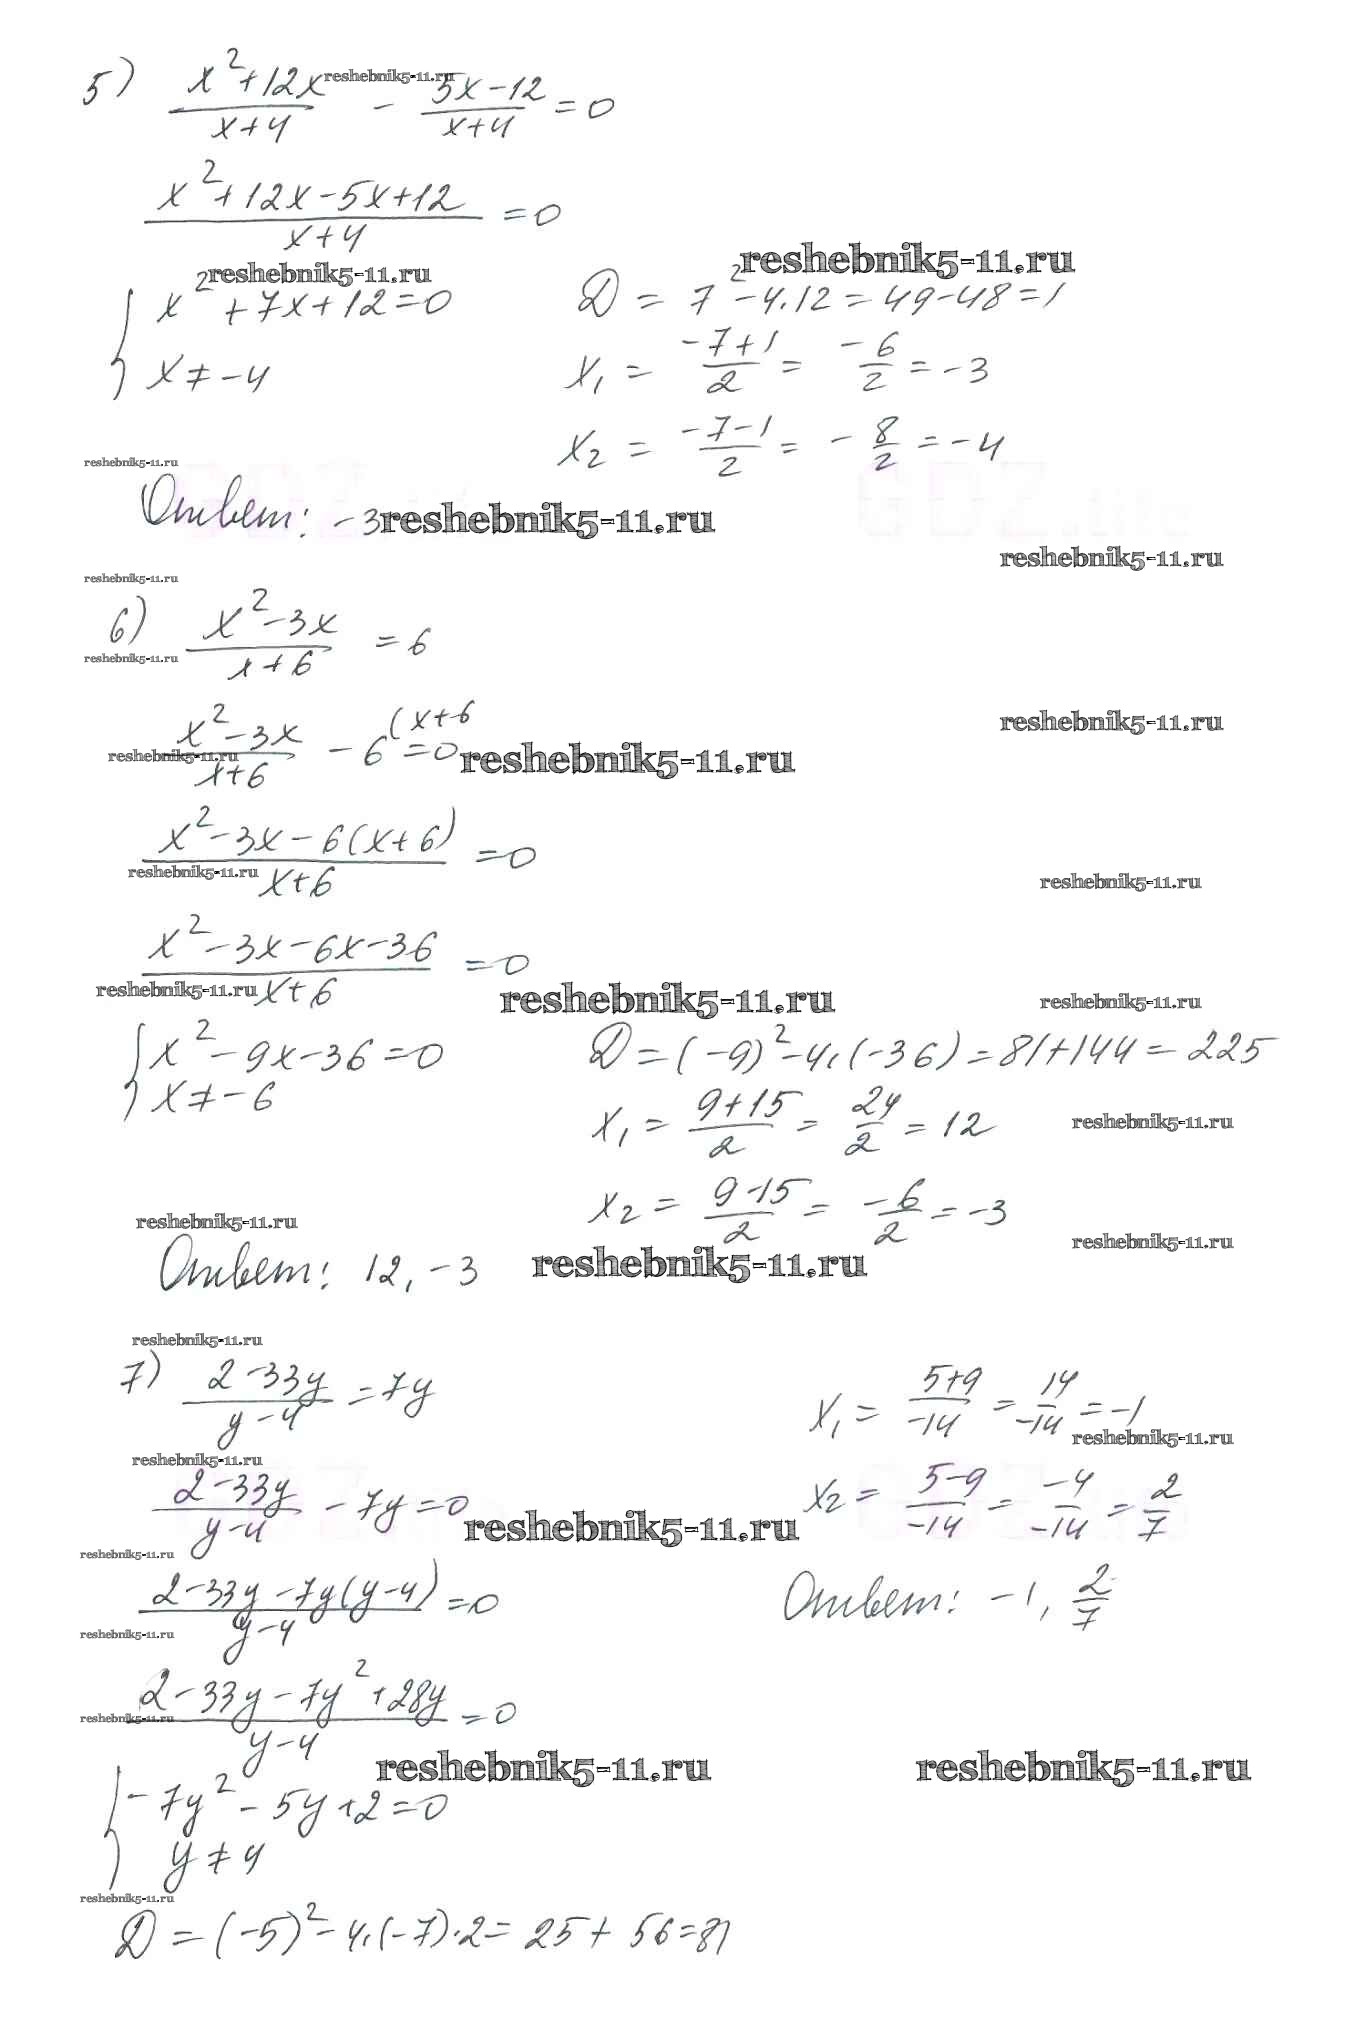 5) (x²+12x)/(x+4) - (5x-12)/(x+4) = 0
reshebnik5-11.ru
(x²+12x-5x+12)/(x+4) = 0
reshebnik5-11.ru
reshebnik5-11.ru
{ x²+7x+12=0
x≠-4
D = 7²-4·12=49-48=1
x₁ = (-7+1)/2 = -6/2 = -3
x₂ = (-7-1)/2 = -8/2 = -4
reshebnik5-11.ru
Ответ: -3
reshebnik5-11.ru
reshebnik5-11.ru
reshebnik5-11.ru
6) (x²-3x)/(x+6) = 6
reshebnik5-11.ru
reshebnik5-11.ru
(x²-3x)/(x+6) - 6^(x+6 = 0
reshebnik5-11.ru
reshebnik5-11.ru
(x²-3x-6(x+6))/(x+6) = 0
reshebnik5-11.ru
reshebnik5-11.ru
(x²-3x-6x-36)/(x+6) = 0
reshebnik5-11.ru
reshebnik5-11.ru
reshebnik5-11.ru
{ x²-9x-36=0
x≠-6
D=(-9)²-4·(-36)=81+144=225
x₁ = (9+15)/2 = 24/2 = 12
reshebnik5-11.ru
x₂ = (9-15)/2 = -6/2 = -3
reshebnik5-11.ru
reshebnik5-11.ru
Ответ: 12, -3
reshebnik5-11.ru
reshebnik5-11.ru
7) (2-33y)/(y-4) = 7y
reshebnik5-11.ru
(2-33y)/(y-4) - 7y=0
reshebnik5-11.ru
reshebnik5-11.ru
(2-33y-7y(y-4))/(y-4) = 0
reshebnik5-11.ru
(2-33y-7y²+28y)/(y-4) = 0
reshebnik5-11.ru
reshebnik5-11.ru
reshebnik5-11.ru
{ -7y²-5y+2=0
y≠4
reshebnik5-11.ru
D=(-5)²-4·(-7)·2=25+56=81
x₁ = (5+9)/-14 = 14/-14 = -1
reshebnik5-11.ru
x₂ = (5-9)/-14 = -4/-14 = 2/7
Ответ: -1, 2/7